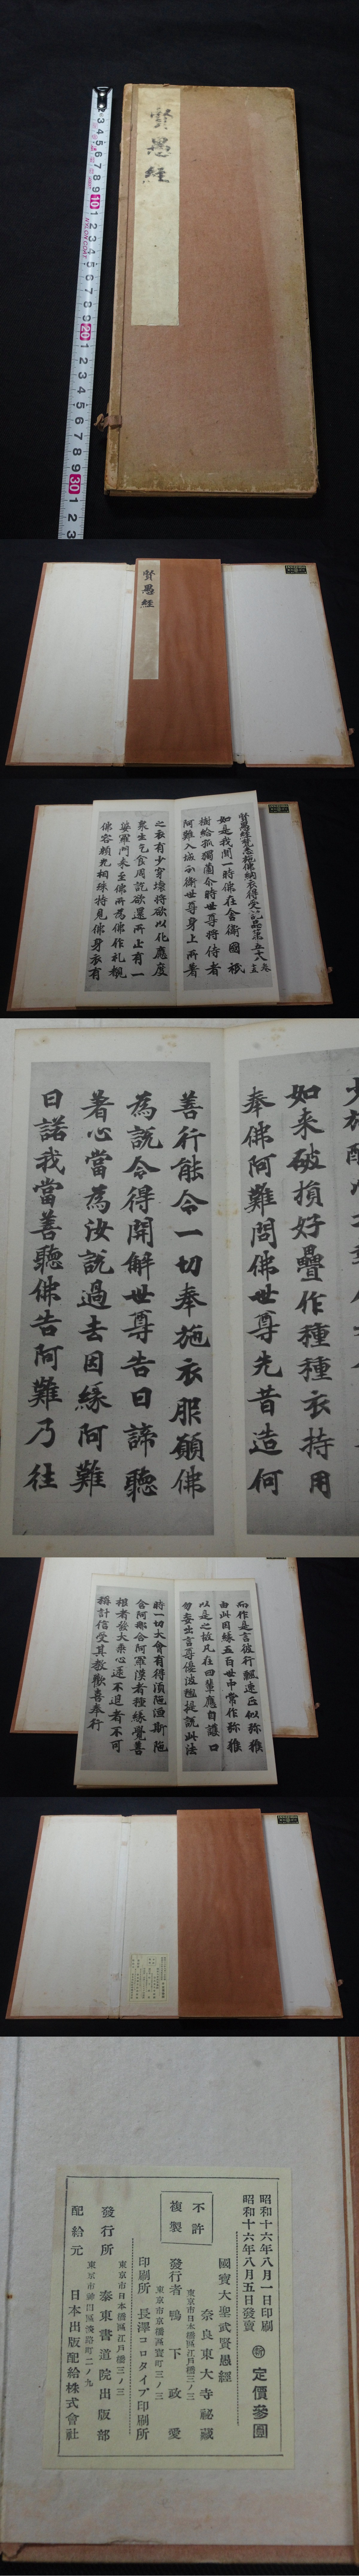 賢愚經
賢愚經
如是我聞一時佛在舍衛國祇
樹給孤獨薗尒時世尊將侍者
阿難入城
世尊身上所著
之衣有少穿壞將欲以化應度
衆生乞食周訖欲還所止有一
婆羅門來至佛所為佛作礼覩
佛容顏光相殊特見佛身衣有
如来破損好疊作種種衣持用
奉佛阿難問佛世尊先昔造何
善行能令一切奉施衣服願佛
為説令得開解世尊告曰諦聽
著心當為汝説過去因緣阿難
曰諾我當善聽佛告阿難乃往
而作是言彼行輕速正似弥猴
由此因緣五百世中常作弥猴
以是之故凡在四輩應自護口
勿妄出言尊優波毱提説此法
時一切大會有得湏陁洹斯陁
含阿那含阿羅漢者種緣覺善
根者發大乘心逮不退者不可
稱計信受其教歡喜奉行
昭和十六年八月一日印刷
昭和十六年八月五日發賣
定價參圓
國寶大聖武賢愚經
奈良東大寺祕藏
不許複製
東京市日本橋區江戸橋三ノ三
發行者 鴨下政愛
東京市京橋區寶町三ノ三
印刷所 長澤コロタイプ印刷所
東京市日本橋區江戸橋三ノ三
發行所 泰東書道院出版部
東京市神田區淡路町二ノ九
配給元 日本出版配給株式會社